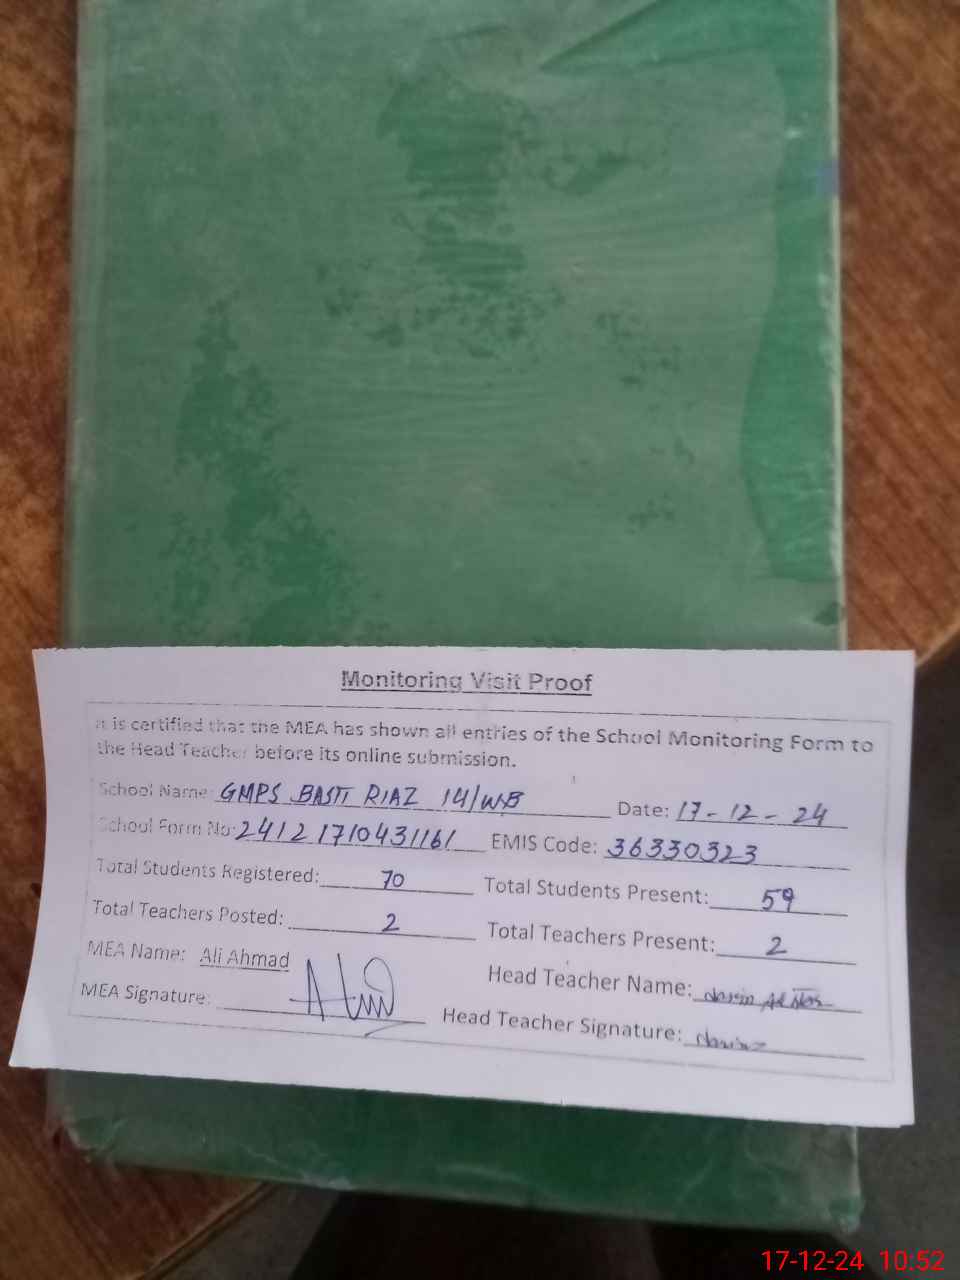 Monitoring Visit Proof
It is certified that the MEA has shown all entries of the School Monitoring Form to
the Head Teacher before its online submission.
School Name: GMPS BASTI RIAZ 14/WB Date: 17-12-24
School Form No: 24121710431161 EMIS Code: 36330323
Total Students Registered: 70 Total Students Present: 59
Total Teachers Posted: 2 Total Teachers Present: 2
MEA Name: Ali Ahmad Head Teacher Name:
MEA Signature: Head Teacher Signature:
17-12-24 10:52